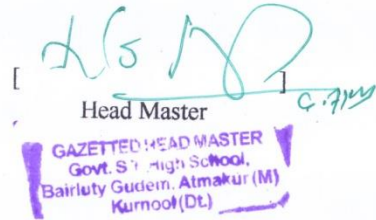 [ ]
Head Master
GAZETTED HEAD MASTER
Govt. High School,
Bairluty Gudem. Atmakur (M)
Kurnool (Dt.)